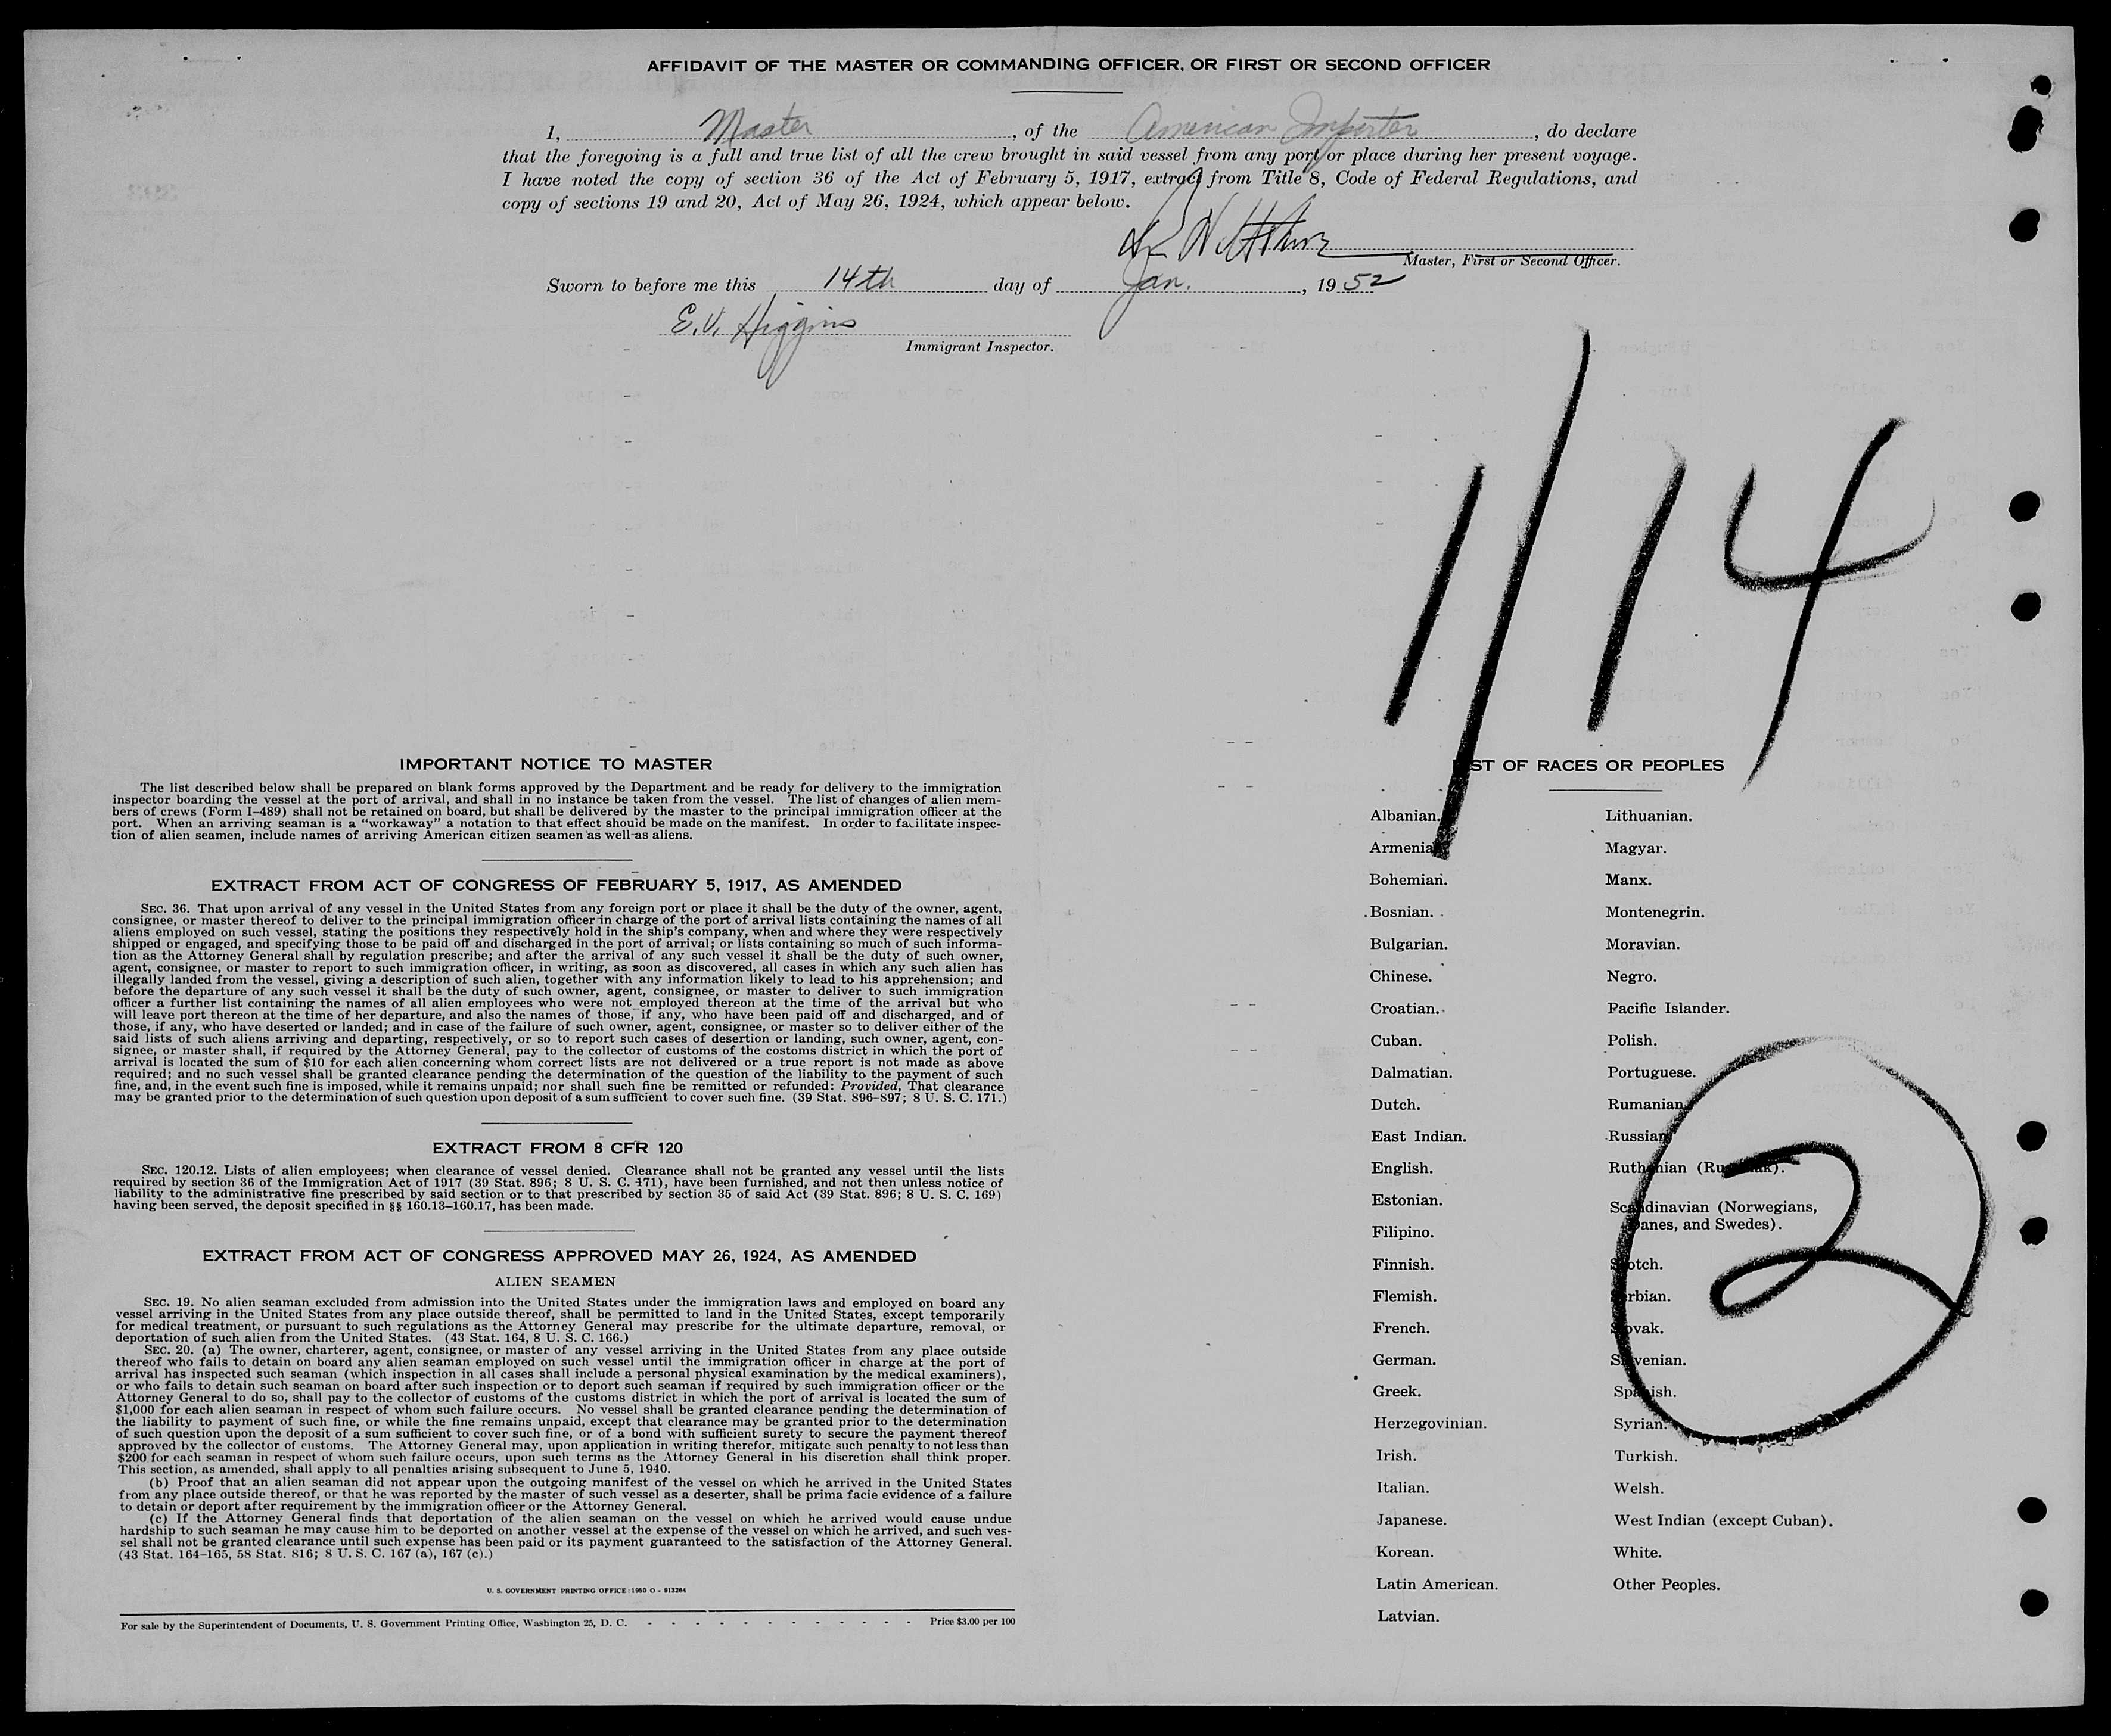 AFFIDAVIT OF THE MASTER OR COMMANDING OFFICER, OR FIRST OR SECOND OFFICER
I, Master, of the American Importer, do declare
that the foregoing is a full and true list of all the crew brought in said vessel from any port or place during her present voyage.
I have noted the copy of section 36 of the Act of February 5, 1917, extract from Title 8, Code of Federal Regulations, and
copy of sections 19 and 20, Act of May 26, 1924, which appear below.
Master, First or Second Officer.
Sworn to before me this 14th day of Jan., 1952
E.V. Higgins
Immigrant Inspector.
1/14
IMPORTANT NOTICE TO MASTER
The list described below shall be prepared on blank forms approved by the Department and be ready for delivery to the immigration
inspector boarding the vessel at the port of arrival, and shall in no instance be taken from the vessel. The list of changes of alien mem-
bers of crews (Form I-489) shall not be retained on board, but shall be delivered by the master to the principal immigration officer at the
port. When an arriving seaman is a "workaway" a notation to that effect should be made on the manifest. In order to facilitate inspec-
tion of alien seamen, include names of arriving American citizen seamen as well as aliens.
EXTRACT FROM ACT OF CONGRESS OF FEBRUARY 5, 1917, AS AMENDED
SEC. 36. That upon arrival of any vessel in the United States from any foreign port or place it shall be the duty of the owner, agent,
consignee, or master thereof to deliver to the principal immigration officer in charge of the port of arrival lists containing the names of all
aliens employed on such vessel, stating the positions they respectively hold in the ship's company, when and where they were respectively
shipped or engaged, and specifying those to be paid off and discharged in the port of arrival; or lists containing so much of such informa-
tion as the Attorney General shall by regulation prescribe; and after the arrival of any such vessel it shall be the duty of such owner,
agent, consignee, or master to report to such immigration officer, in writing, as soon as discovered, all cases in which any such alien has
illegally landed from the vessel, giving a description of such alien, together with any information likely to lead to his apprehension; and
before the departure of any such vessel it shall be the duty of such owner, agent, consignee, or master to deliver to such immigration
officer a further list containing the names of all alien employees who were not employed thereon at the time of the arrival but who
will leave port thereon at the time of her departure, and also the names of those, if any, who have been paid off and discharged, and of
those, if any, who have deserted or landed; and in case of the failure of such owner, agent, consignee, or master so to deliver either of the
said lists of such aliens arriving and departing, respectively, or so to report such cases of desertion or landing, such owner, agent, con-
signee, or master shall, if required by the Attorney General, pay to the collector of customs of the costoms district in which the port of
arrival is located the sum of $10 for each alien concerning whom correct lists are not delivered or a true report is not made as above
required; and no such vessel shall be granted clearance pending the determination of the question of the liability to the payment of such
fine, and, in the event such fine is imposed, while it remains unpaid; nor shall such fine be remitted or refunded: Provided, That clearance
may be granted prior to the determination of such question upon deposit of a sum sufficient to cover such fine. (39 Stat. 896-897; 8 U. S. C. 171.)
EXTRACT FROM 8 CFR 120
SEC. 120.12. Lists of alien employees; when clearance of vessel denied. Clearance shall not be granted any vessel until the lists
required by section 36 of the Immigration Act of 1917 (39 Stat. 896; 8 U. S. C. 171), have been furnished, and not then unless notice of
liability to the administrative fine prescribed by said section or to that prescribed by section 35 of said Act (39 Stat. 896; 8 U. S. C. 169)
having been served, the deposit specified in §§ 160.13-160.17, has been made.
EXTRACT FROM ACT OF CONGRESS APPROVED MAY 26, 1924, AS AMENDED
ALIEN SEAMEN
SEC. 19. No alien seaman excluded from admission into the United States under the immigration laws and employed on board any
vessel arriving in the United States from any place outside thereof, shall be permitted to land in the United States, except temporarily
for medical treatment, or pursuant to such regulations as the Attorney General may prescribe for the ultimate departure, removal, or
deportation of such alien from the United States. (43 Stat. 164, 8 U. S. C. 166.)
SEC. 20. (a) The owner, charterer, agent, consignee, or master of any vessel arriving in the United States from any place outside
thereof who fails to detain on board any alien seaman employed on such vessel until the immigration officer in charge at the port of
arrival has inspected such seaman (which inspection in all cases shall include a personal physical examination by the medical examiners),
or who fails to detain such seaman on board after such inspection or to deport such seaman if required by such immigration officer or the
Attorney General to do so, shall pay to the collector of customs of the customs district in which the port of arrival is located the sum of
$1,000 for each alien seaman in respect of whom such failure occurs. No vessel shall be granted clearance pending the determination of
the liability to payment of such fine, or while the fine remains unpaid, except that clearance may be granted prior to the determination
of such question upon the deposit of a sum sufficient to cover such fine, or of a bond with sufficient surety to secure the payment thereof
approved by the collector of customs. The Attorney General may, upon application in writing therefor, mitigate such penalty to not less than
$200 for each seaman in respect of whom such failure occurs, upon such terms as the Attorney General in his discretion shall think proper.
This section, as amended, shall apply to all penalties arising subsequent to June 5, 1940.
(b) Proof that an alien seaman did not appear upon the outgoing manifest of the vessel on which he arrived in the United States
from any place outside thereof, or that he was reported by the master of such vessel as a deserter, shall be prima facie evidence of a failure
to detain or deport after requirement by the immigration officer or the Attorney General.
(c) If the Attorney General finds that deportation of the alien seaman on the vessel on which he arrived would cause undue
hardship to such seaman he may cause him to be deported on another vessel at the expense of the vessel on which he arrived, and such ves-
sel shall not be granted clearance until such expense has been paid or its payment guaranteed to the satisfaction of the Attorney General.
(43 Stat. 164-165, 58 Stat. 816; 8 U. S. C. 167 (a), 167 (c).)
U. S. GOVERNMENT PRINTING OFFICE: 1950 O - 913264
For sale by the Superintendent of Documents, U. S. Government Printing Office, Washington 25, D. C. - - - - - - - - - - - - Price $3.00 per 100
LIST OF RACES OR PEOPLES
Albanian.
Armenian.
Bohemian.
Bosnian.
Bulgarian.
Chinese.
Croatian.
Cuban.
Dalmatian.
Dutch.
East Indian.
English.
Estonian.
Filipino.
Finnish.
Flemish.
French.
German.
Greek.
Herzegovinian.
Irish.
Italian.
Japanese.
Korean.
Latin American.
Latvian.
Lithuanian.
Magyar.
Manx.
Montenegrin.
Moravian.
Negro.
Pacific Islander.
Polish.
Portuguese.
Rumanian.
Russian.
Ruthenian (Russniak).
Scandinavian (Norwegians,
Danes, and Swedes).
Scotch.
Serbian.
Slovak.
Slovenian.
Spanish.
Syrian.
Turkish.
Welsh.
West Indian (except Cuban).
White.
Other Peoples.
2